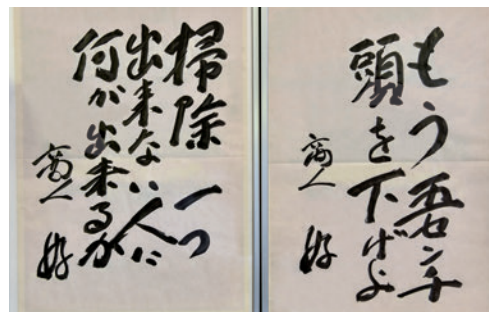 もう五センチ
頭を下げよ
商人
掃除一つ
出来ない人に
何が出来るか
商人